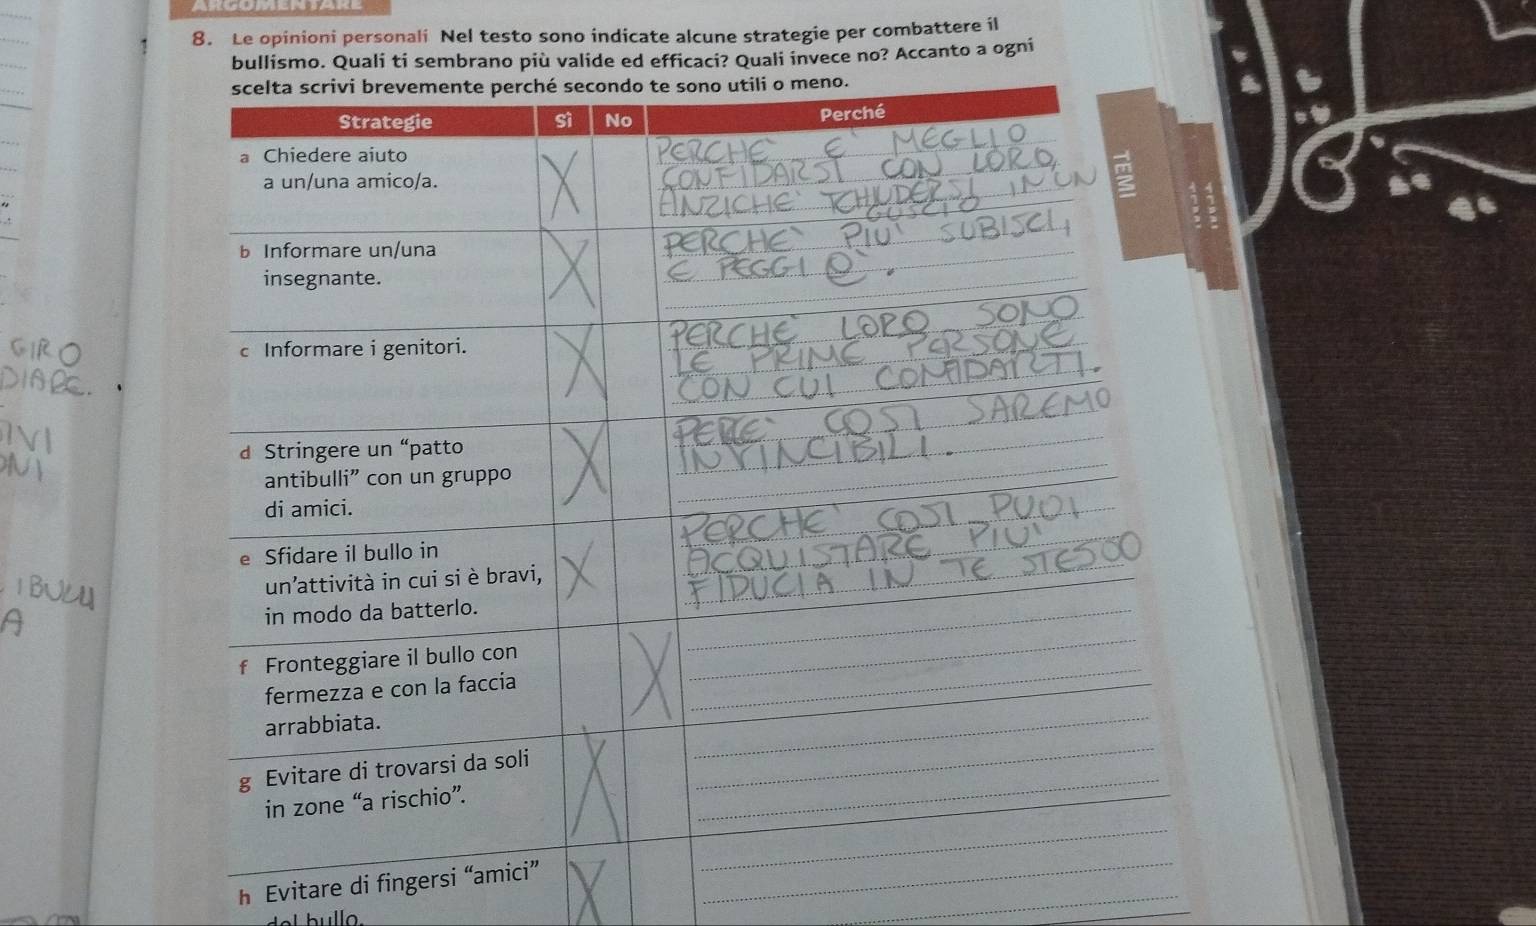 ARGOMENTARE
8. Le opinioni personali Nel testo sono indicate alcune strategie per combattere il
bullismo. Quali ti sembrano più valide ed efficaci? Quali invece no? Accanto a ogni
scelta scrivi brevemente perché secondo te sono utili o meno.
Strategie Sì No Perché
a Chiedere aiuto
a un/una amico/a.
PERCHE È MEGLIO
CONFIDARSI CON LORO,
ANZICHE' IN UN
GUSCIO
b Informare un/una
insegnante.
PERCHE' PIU' SUBISCI,
E PEGGI O'.
c Informare i genitori.
PERCHE' LORO SONO
LE PRIME PERSONE
CON CUI CONFIDARTI.
d Stringere un “patto
antibulli” con un gruppo
di amici.
COSI SAREMO
INVINCIBILI.
e Sfidare il bullo in
un’attività in cui si è bravi,
in modo da batterlo.
PERCHE' COSI PUOI
ACQUISTARE PIU'
FIDUCIA IN TE
f Fronteggiare il bullo con
fermezza e con la faccia
arrabbiata.
g Evitare di trovarsi da soli
in zone “a rischio”.
h Evitare di fingersi “amici”
del bullo.
TEMI
GIRO